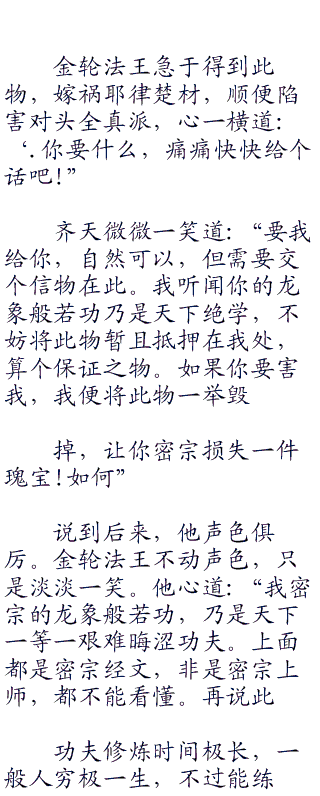 金轮法王急于得到此
物，嫁祸耶律楚材，顺便陷
害对头全真派，心一横道：
‘.你要什么，痛痛快快给个
话吧！”
齐天微微一笑道：“要我
给你，自然可以，但需要交
个信物在此。我听闻你的龙
象般若功乃是天下绝学，不
妨将此物暂且抵押在我处，
算个保证之物。如果你要害
我，我便将此物一举毁
掉，让你密宗损失一件
瑰宝！如何”
说到后来，他声色俱
厉。金轮法王不动声色，只
是淡淡一笑。他心道：“我密
宗的龙象般若功，乃是天下
一等一艰难晦涩功夫。上面
都是密宗经文，非是密宗上
师，都不能看懂。再说此
功夫修炼时间极长，一
般人穷极一生，不过能练